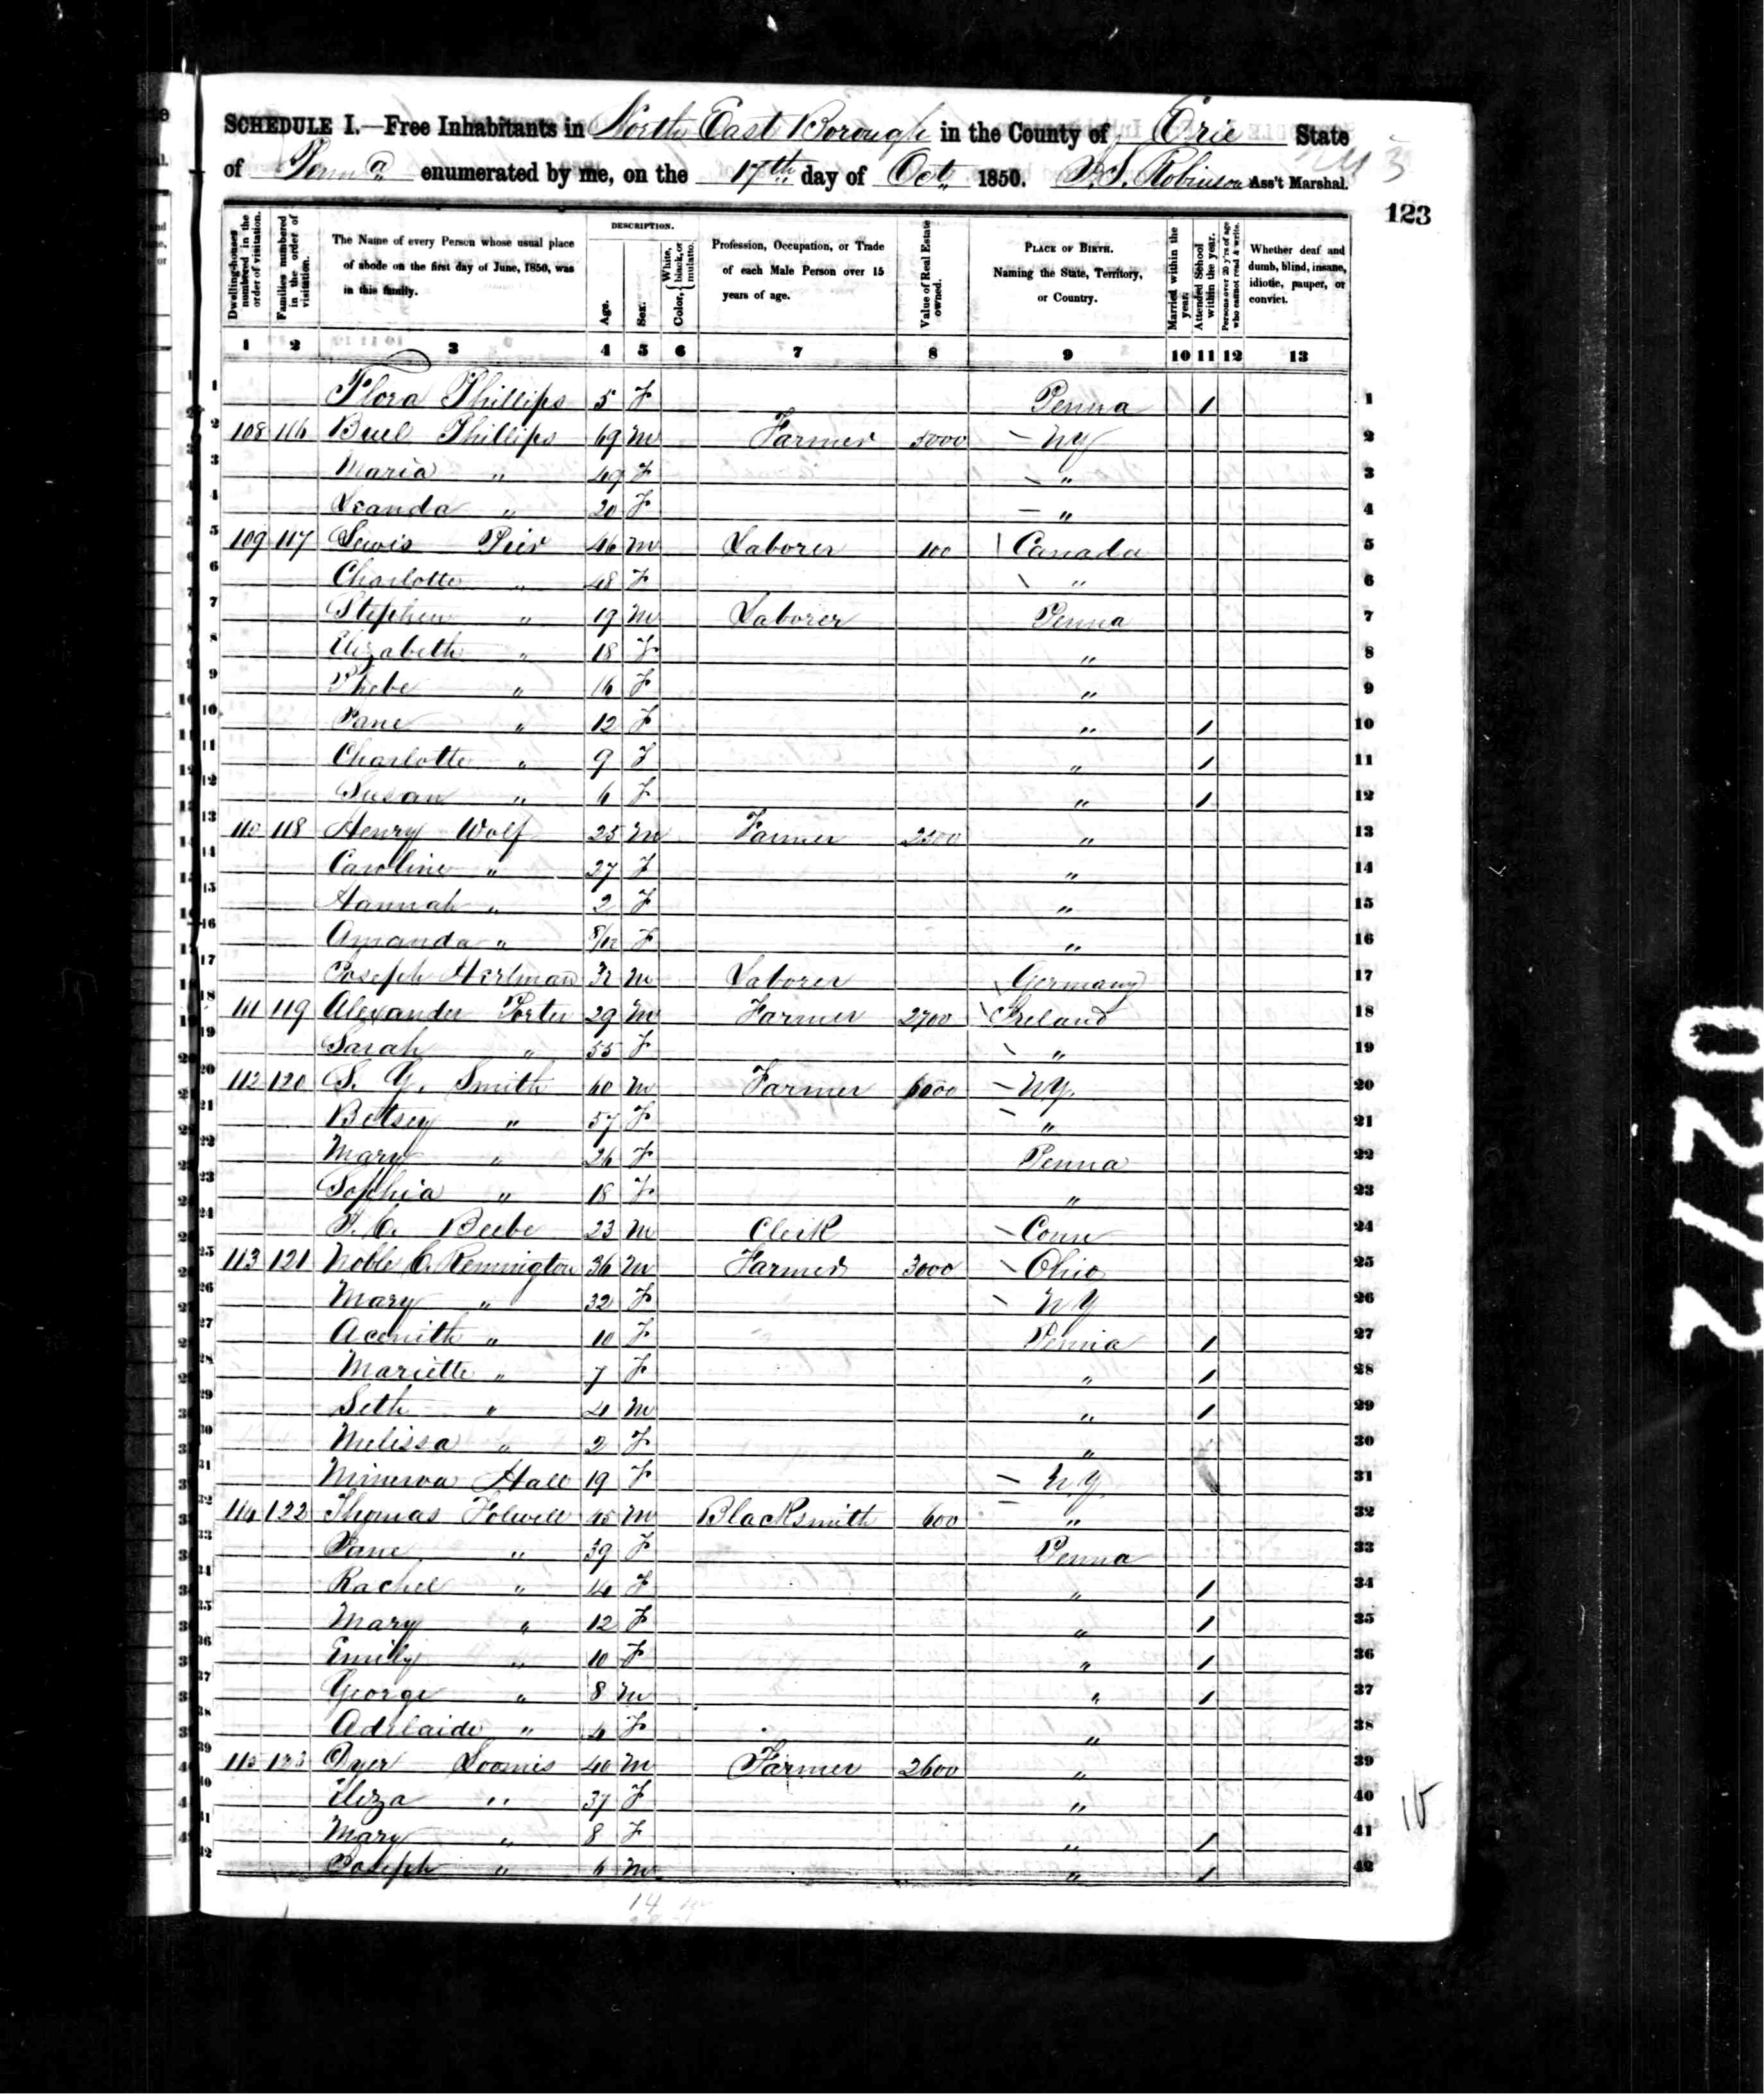 SCHEDULE I.—Free Inhabitants in North East Borough in the County of Erie State
of Penna enumerated by me, on the 17th day of Oct 1850. Robinson Ass't Marshal.
123
Dwelling-houses numbered in the order of visitation.
Families numbered in the order of visitation.
The Name of every Person whose usual place of abode on the first day of June, 1850, was in this family.
DESCRIPTION.
Age.
Sex.
Color, { White, black, or mulatto.
Profession, Occupation, or Trade of each Male Person over 15 years of age.
Value of Real Estate owned.
PLACE OF BIRTH. Naming the State, Territory, or Country.
Married within the year.
Attended School within the year.
Persons over 20 y'rs of age who cannot read & write.
Whether deaf and dumb, blind, insane, idiotic, pauper, or convict.
1 2 3 4 5 6 7 8 9 10 11 12 13
1 Flora Phillips 5 F Penna / 1
2 108 116 Buel Phillips 69 M Farmer 5000 NY 2
3 Maria " 49 F " 3
4 20 F " 4
5 109 117 Lewis Peir 46 M Laborer 100 Canada 5
6 Charlotte " 48 F " 6
7 Stephen " 19 M Laborer Penna 7
8 Elizabeth " 18 F " 8
9 Phebe " 16 F " 9
10 Jane " 12 F " / 10
11 Charlotte " 9 F " / 11
12 Susan " 6 F " / 12
13 110 118 Henry Wolf 25 M Farmer 2500 " 13
14 Caroline " 27 F " 14
15 Hannah " 2 F " 15
16 Amanda " 8/12 F " 16
17 Joseph Hertman 32 M Laborer Germany 17
18 111 119 Alexander Porter 29 M Farmer 2700 Ireland 18
19 Sarah " 55 F " 19
20 112 120 S. Smith 60 M Farmer 6000 NY. 20
21 Betsey " 57 F " 21
22 Mary " 26 F Penna 22
23 Sophia " 18 F " 23
24 Beebe 23 M Clerk Conn 24
25 113 121 Noble C. Remmington 36 M Farmer 3000 Ohio 25
26 Mary " 32 F NY 26
27 Acenith " 10 F Penna / 27
28 Mariette " 7 F " / 28
29 Seth " 4 M " / 29
30 Melissa " 2 F " 30
31 Minerva Hall 19 F N.Y. 31
32 114 122 Thomas Folwell 45 M Blacksmith 600 " 32
33 Jane " 39 F Penna 33
34 Rachel " 14 F " / 34
35 Mary " 12 F " / 35
36 Emily " 10 F " / 36
37 George " 8 M " / 37
38 Adelaide " 4 F " 38
39 115 123 Dyer Loomis 40 M Farmer 2600 " 39
40 Eliza " 37 F " 40
41 Mary " 8 F " / 41
42 Joseph " 6 M " / 42
14
0272